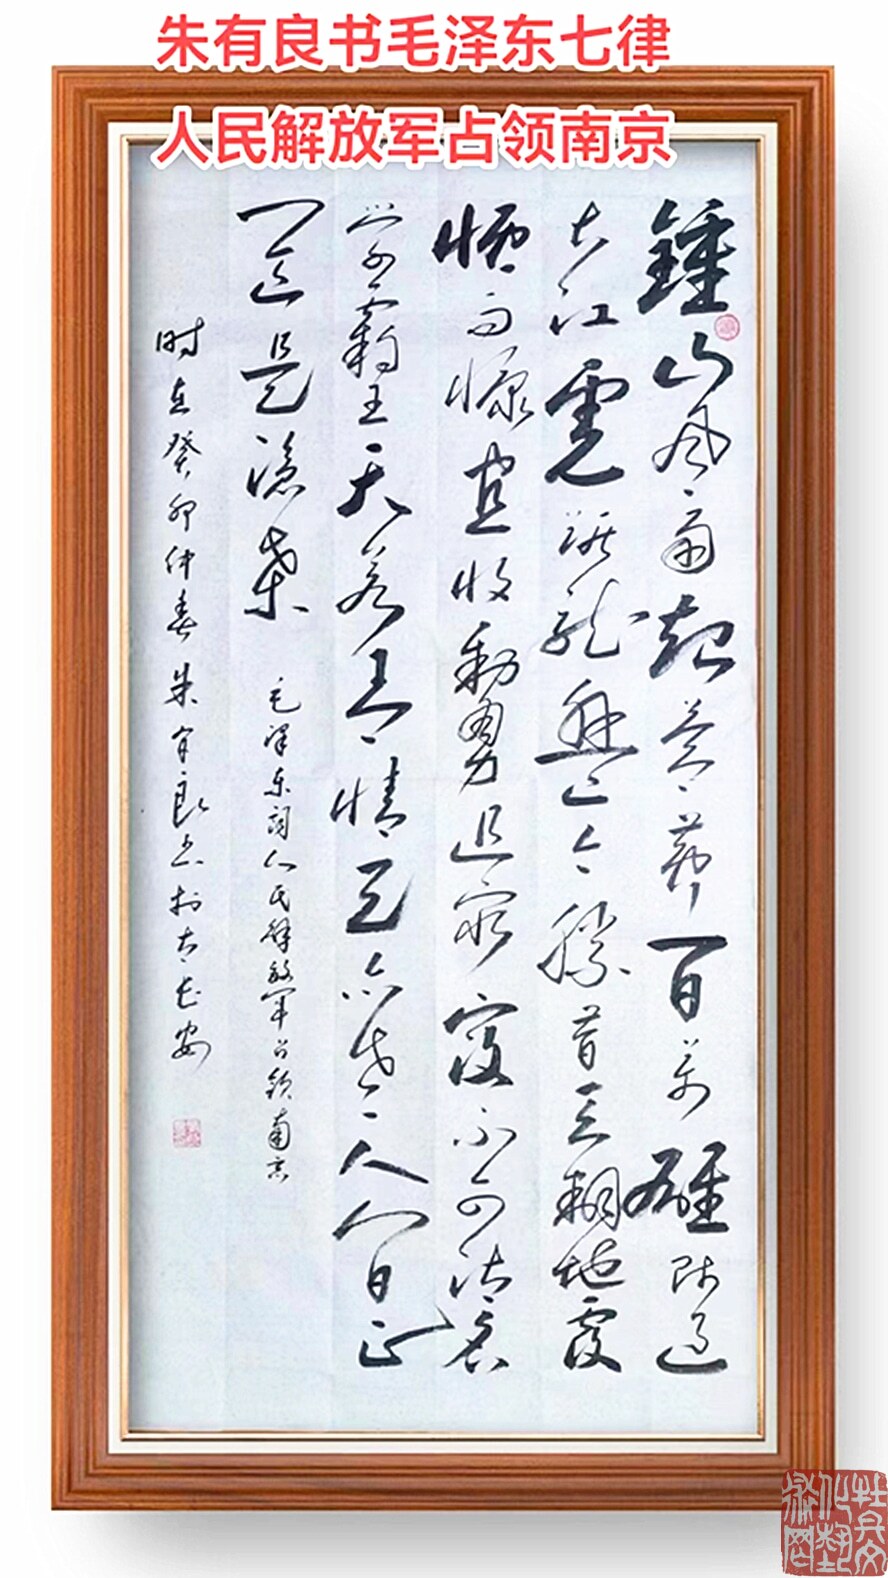 朱有良书毛泽东七律
人民解放军占领南京
鍾山风雨起苍黄百万雄师过
大江虎踞龙盘今胜昔天翻地覆
慨而慷宜将剩勇追穷寇不可沽名
学霸王天若有情天亦老人间正
道是沧桑
毛泽东词人民解放军占领南京
时在癸卯仲春朱有良书于古长安